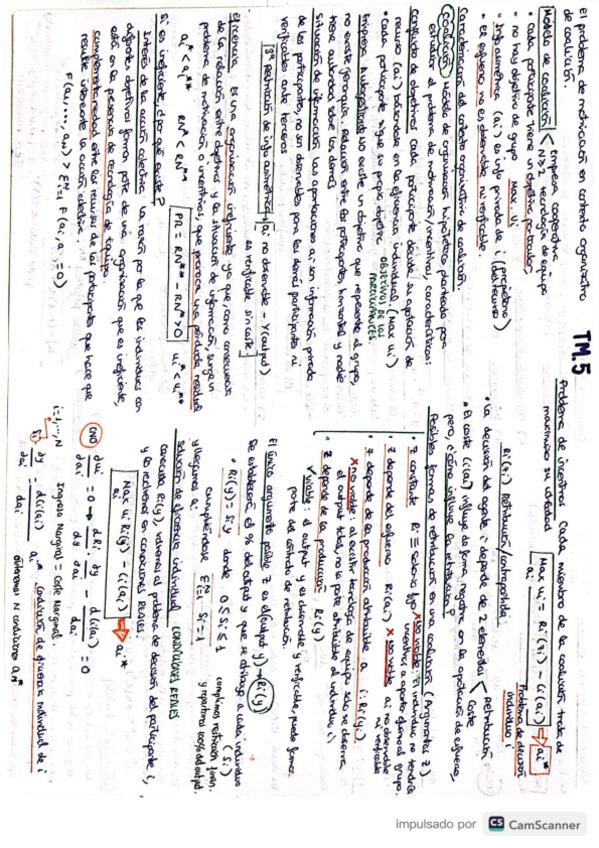 TM.5
El problema de motivación en contexto organizativo
de coalición.
Modelo de coalición < Empresa cooperativa
N>2 tecnología de equipo
• cada participante tiene un objetivo particular,
no hay objetivo de grupo Max. Ui
• Info asimétrica (ai) es info privada de i
• El esfuerzo no es observable ni verificable.
Características del contexto organizativo de coalición.
Coalición: Modelo de organización hipotética planteado para
estudiar el problema de motivación/incentivos, características:
Conflicto de objetivos cada participante decide su aportación de
recurso (ai) basándose en la eficiencia individual (Max Ui)
• cada participante sigue su propio objetivo OBJETIVOS DE LOS
PARTICIPANTES
no existe jerarquía, relación entre los participantes, horizontal y nadie
tiene autoridad sobre los demás
Situación de información las aportaciones ai son información privada
de los participantes, no son observables para los demás participantes ni
verificables ante terceros
ai no observable - Y(output)
es verificable sin coste
Eficiencia es una organización ineficiente ya que, como consecuencia
de la relación entre objetivos y la situación de información, surge un
problema de motivación e incentivos, que provoca una pérdida residual
ai* < ai** RN* < RN** PR = RN** - RN* > 0 Ui* < Ui**
Si es ineficiente, ¿por qué existe?
Interés de la acción colectiva la razón por la que los individuos con
distintos objetivos forman parte de una organización que es ineficiente,
está en la presencia de tecnología de equipo.
complementariedad entre los recursos de los participantes que hace que
resulte interesante la acción colectiva.
Problema de incentivos Cada miembro de la coalición trata de
maximizar su utilidad
Max Ui = Ri(zi) - Ci(ai) → ai*
ai
Problema de decisión
individuo i
Ri(zi) Retribución/contrapartida
• La decisión del agente i depende de 2 elementos < Retribución
Coste
• El coste Ci(ai) influye de forma negativa en la aportación de esfuerzo,
pero, ¿cómo influye la retribución?
Posibles formas de retribución en una coalición (Argumento z)
• z constante Ri = salario fijo X No viable: el individuo no tendría
incentivos a aportar esfuerzo al grupo.
• z depende del esfuerzo Ri(ai) X No viable ai no observable
ni verificable
• z depende de la producción atribuible a i: Ri(yi)
X No viable: al existir tecnología de equipo solo se observa
el output total, no la parte atribuible al individuo i
• z depende de la producción, Ri(y)
✓ viable: el output y es observable y verificable, puede formar
parte del contrato de retribución.
El único argumento posible z es el output y → Ri(y)
Se establecerá el % del output y que se atribuye a cada individuo
• Ri(y) = Si y donde 0 ≤ Si ≤ 1 (Si)
y repartimos 100% del output.
Solución de eficiencia individual CONDICIONES REALES
conocida Ri(y), volvemos al problema de decisión del participante i,
y lo resolvemos en condiciones REALES.
Max Ui = Ri(y) - Ci(ai) → ai*
ai
CNO dUi/dai = 0 → dRi/dy dy/dai - dCi(ai)/dai = 0
Si dy/dai = dCi(ai)/dai ai* Condición de eficiencia individual de i
i=1,...,N Ingreso Marginal = Coste Marginal.
impulsado por CS CamScanner